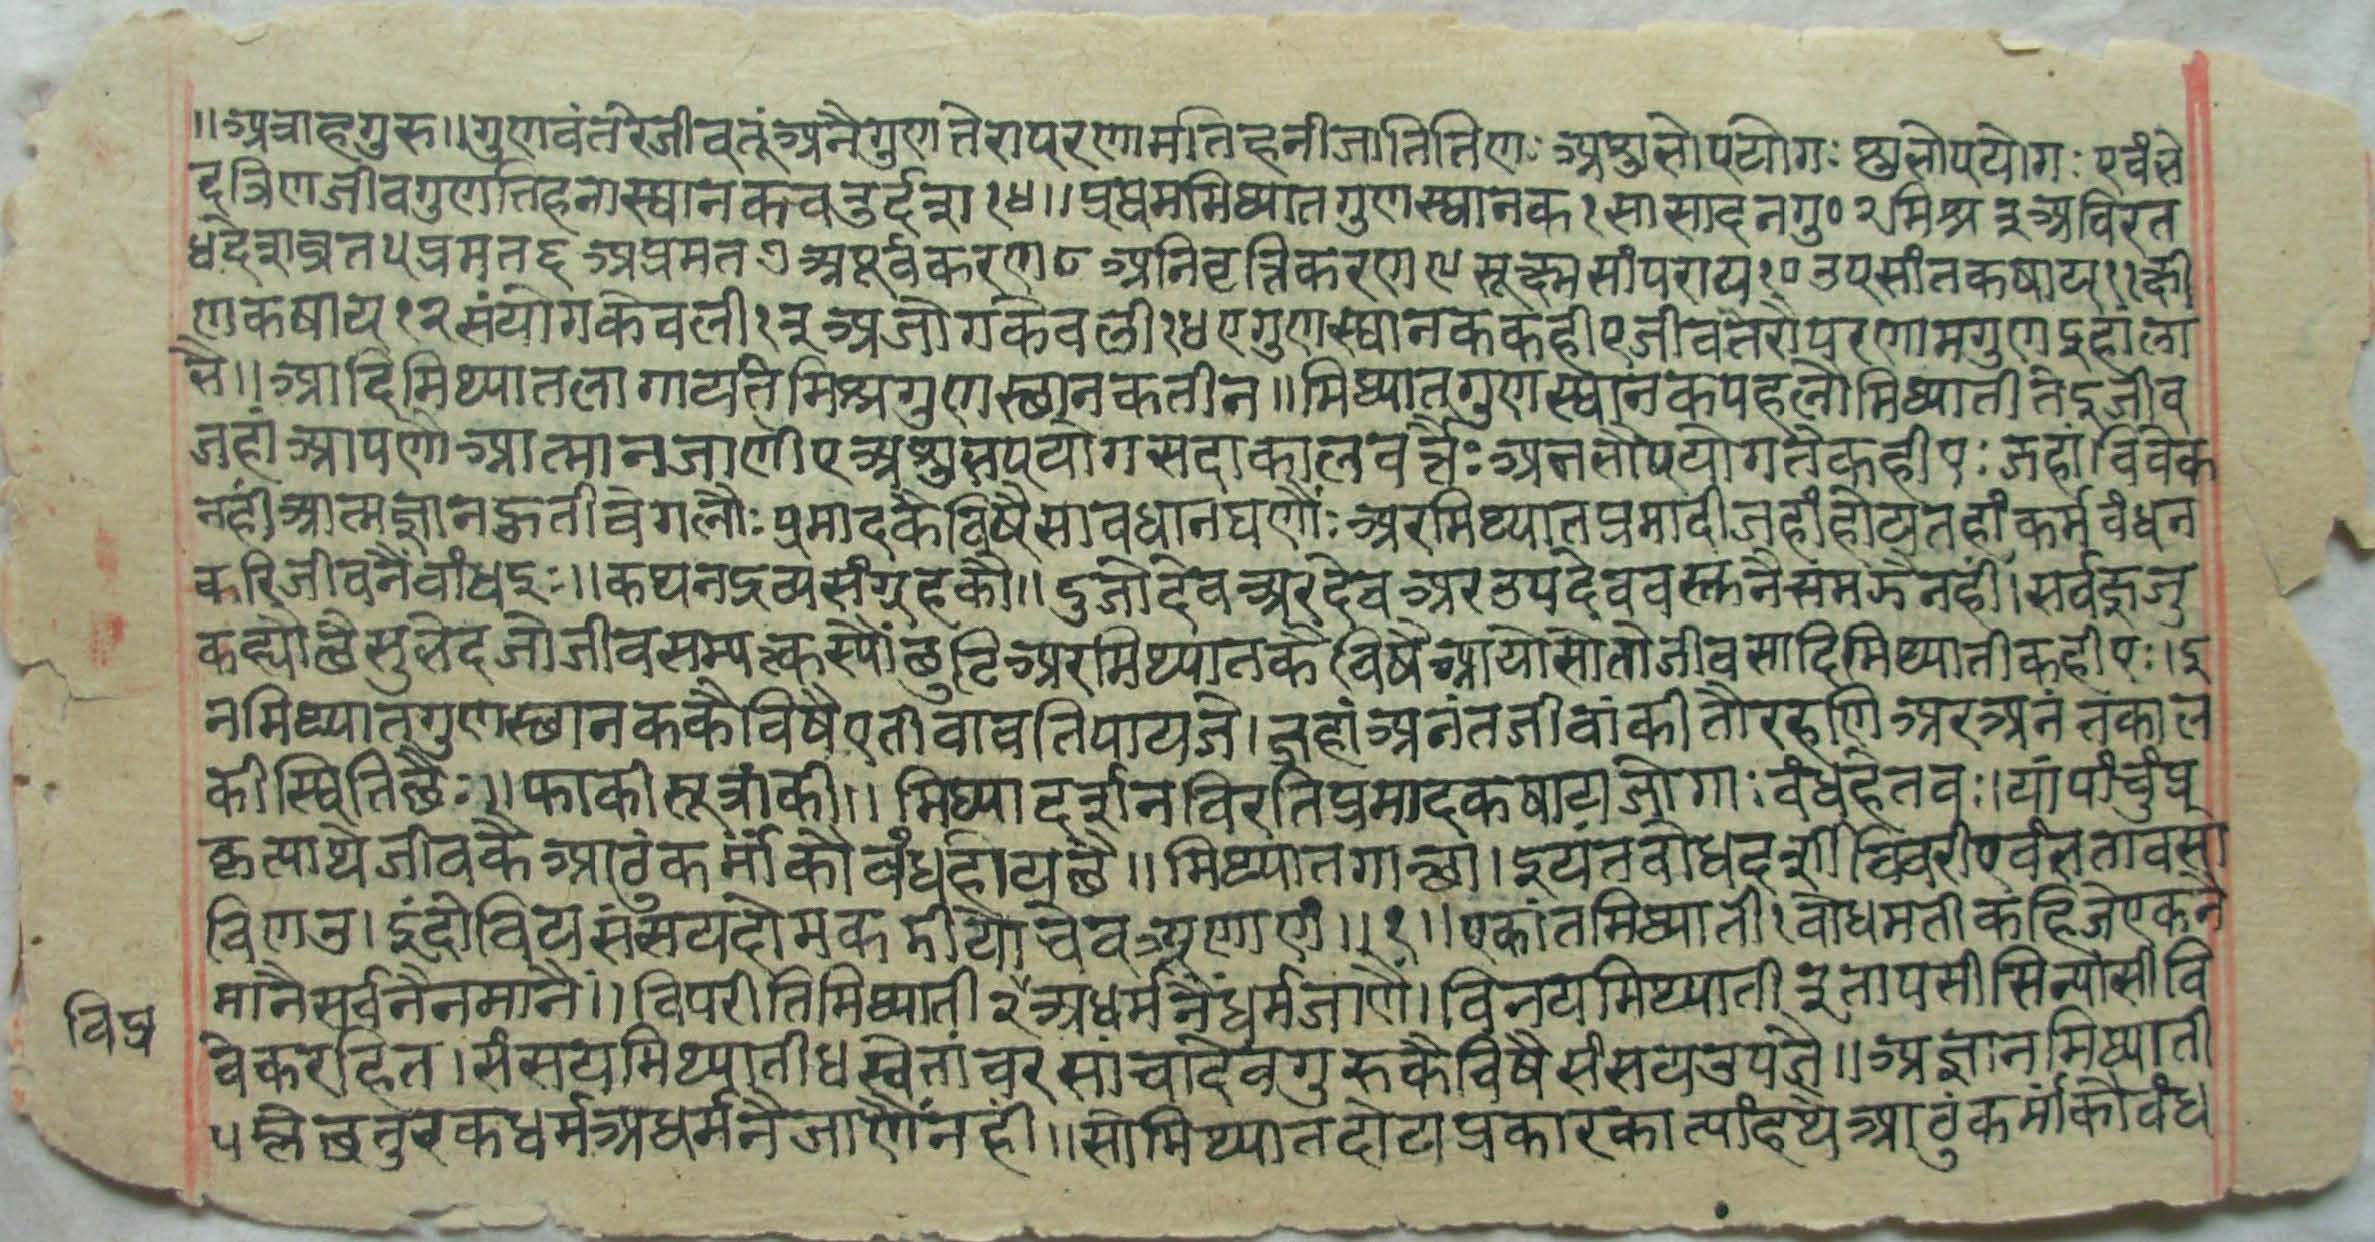 ॥अत्राहगुरु॥गुणवंतरेजीवतूंअनैगुणतेरापरणामतिहनीजातितिणः अशुभोपयोगः शुभोपयोगः एवंभे
दत्रिणजीवगुणतिहनास्थानकचतुर्दश१४॥प्रथममिथ्यातगुणस्थानक१सासादनगु०२मिश्र३अविरत
४देशव्रत५प्रमत६अप्रमत७अपूर्वकरण८अनिवृत्तिकरण९सूक्ष्मसांपराय१०उपसांतकषाय११क्षी
णकषाय१२संयोगकेवली१३अजोगकेवली१४एगुणस्थानककहीएजीवतेरोपरणामगुणइहांला
भै॥आदिमिथ्यातलागायतंमिश्रगुणस्थानकतीन॥मिथ्यातगुणस्थांनकपहलोमिथ्यातीतेइजीव
जहांआपणोआत्मानजाणीएअशुभपयोगसदाकालवर्त्तैःअनभोपयोगतेकहीएःजहांविवेक
नहींआत्मज्ञानहुतीवेगलौःप्रमादकैविषैसावधानघणौंःअरमिथ्यातप्रमादीजहांहोयतहांकर्मबंधन
करिजीवनैंबांधइः॥कथनद्रव्यसंग्रहकौ॥दुजोदेवअरदेवअरउपदेववस्तनैसमझैनहीं।सर्वज्ञजु
कह्योछैसुभेदजोजीवसम्यत्कस्योंछुटिअरमिथ्यातकैविषैआयोसोतोजीवसादिमिथ्यातीकहीएः।इ
नमिथ्यातगुणस्थानककैविषैएतीवावतिपायजे।जहांअनंतजीवांकीतौरहणिअरअनंतकाल
कीस्थितिछैः॥फाकीसूत्रांकी॥मिथ्यादर्शनविरतिप्रमादकषायजोगाःबंधहेतवः।यांपांचुंप्र
कृत्याथैजीवकैआठुंकर्मांकौबंधहोयछै॥मिथ्यातगाच्छा।इयंतबोधदर्शीविवरीएवंभतावसो
विणउ।इंदोवियसंसयदोमकडीयोचेवअणाणं॥१॥एकांतमिथ्याती१बोधमतीकहिजेएकनै
मानैसर्वनैनमानै॥विपरीतिमिथ्याती२अधर्मनैंधर्मजाणै।विनयमिथ्याती३तापसीसिन्यासीवि
वेकरहित।संसयमिथ्याती४स्वेतांबरसांचादेवगुरुकैविषैसंसयउपजै॥अज्ञानमिथ्याती
५म्लेछतुरकधर्मअधर्मनैजाणैंनहीं॥सोमिथ्यातदोयप्रकारकात्यांहथैआठुंकर्मांकौबंध